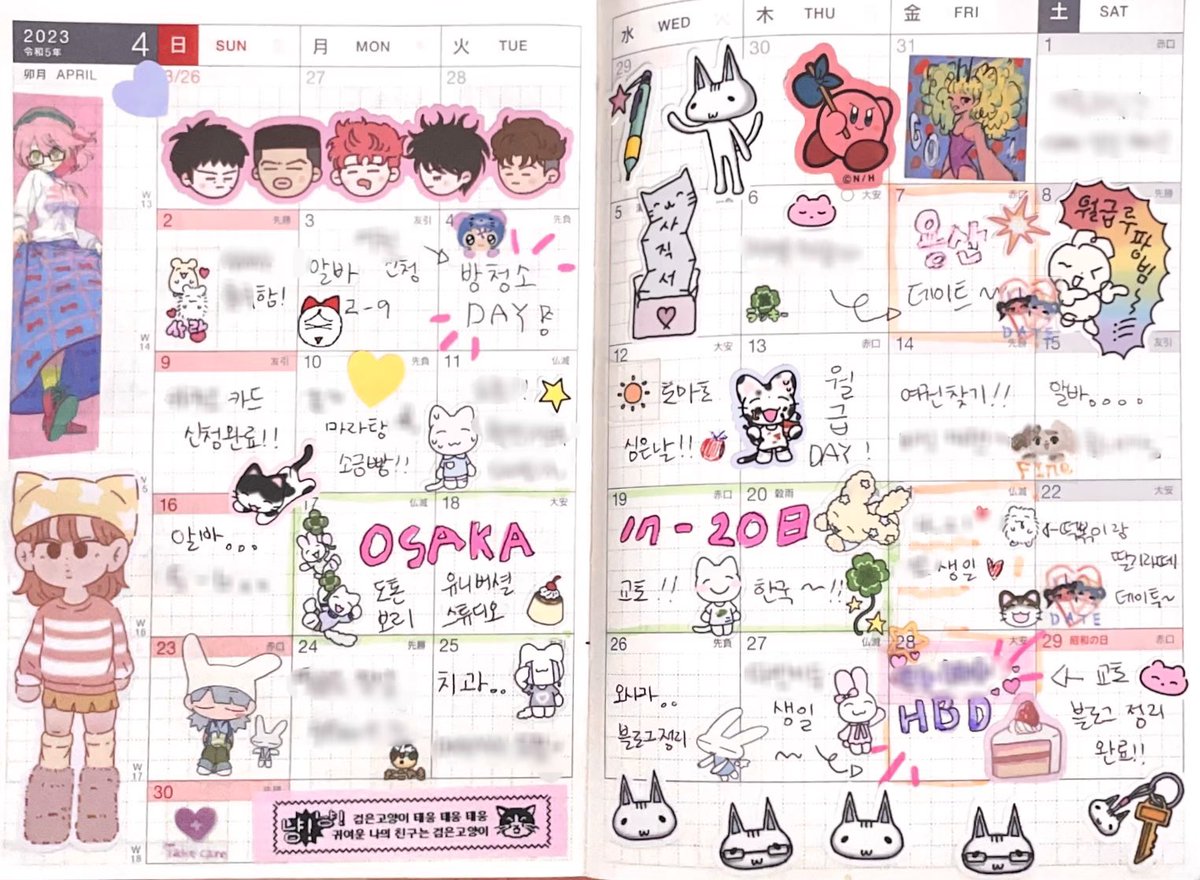 2023
令和5年
4
卯月 APRIL
日 SUN
月 MON
火 TUE
水 WED
木 THU
金 FRI
土 SAT
3/26
27
28
29
30
31
1 赤口
©N/H
W
13
2 先勝
함!
사랑
3 友引
알바
2-9
4 先負
방청소
DAY
5
사
직
서
6 大安
7 赤口
용산
데이트~
DATE
8 先勝
월급루팡이빔~
W
14
9 友引
카드
신청완료!!
10 先負
마라탕
소금빵!!
11 仏滅
!
12 大安
토마토
심은날!!
13 赤口
월
급
DAY!
14 先勝
여권찾기!!
15 友引
알바....
Fine
16
알바...
17 仏滅
18 大安
OSAKA
도톤
보리
유니버셜
스튜디오
19 赤口
20 穀雨
17-20日
교토!!
한국~!!
仏滅
생일
22 大安
떡볶이랑
딸기라떼
데이트~
DATE
W
16
23 赤口
24 先勝
25
치과..
26 先負
오사카..
블로그정리
27 仏滅
생일
~
28 大安
HBD
29 昭和の日 赤口
<- 교토
블로그 정리
완료!!
W
17
30
Take care
검은고양이 태웅 태웅 태웅
귀여운 나의 친구는 검은고양이
W
18